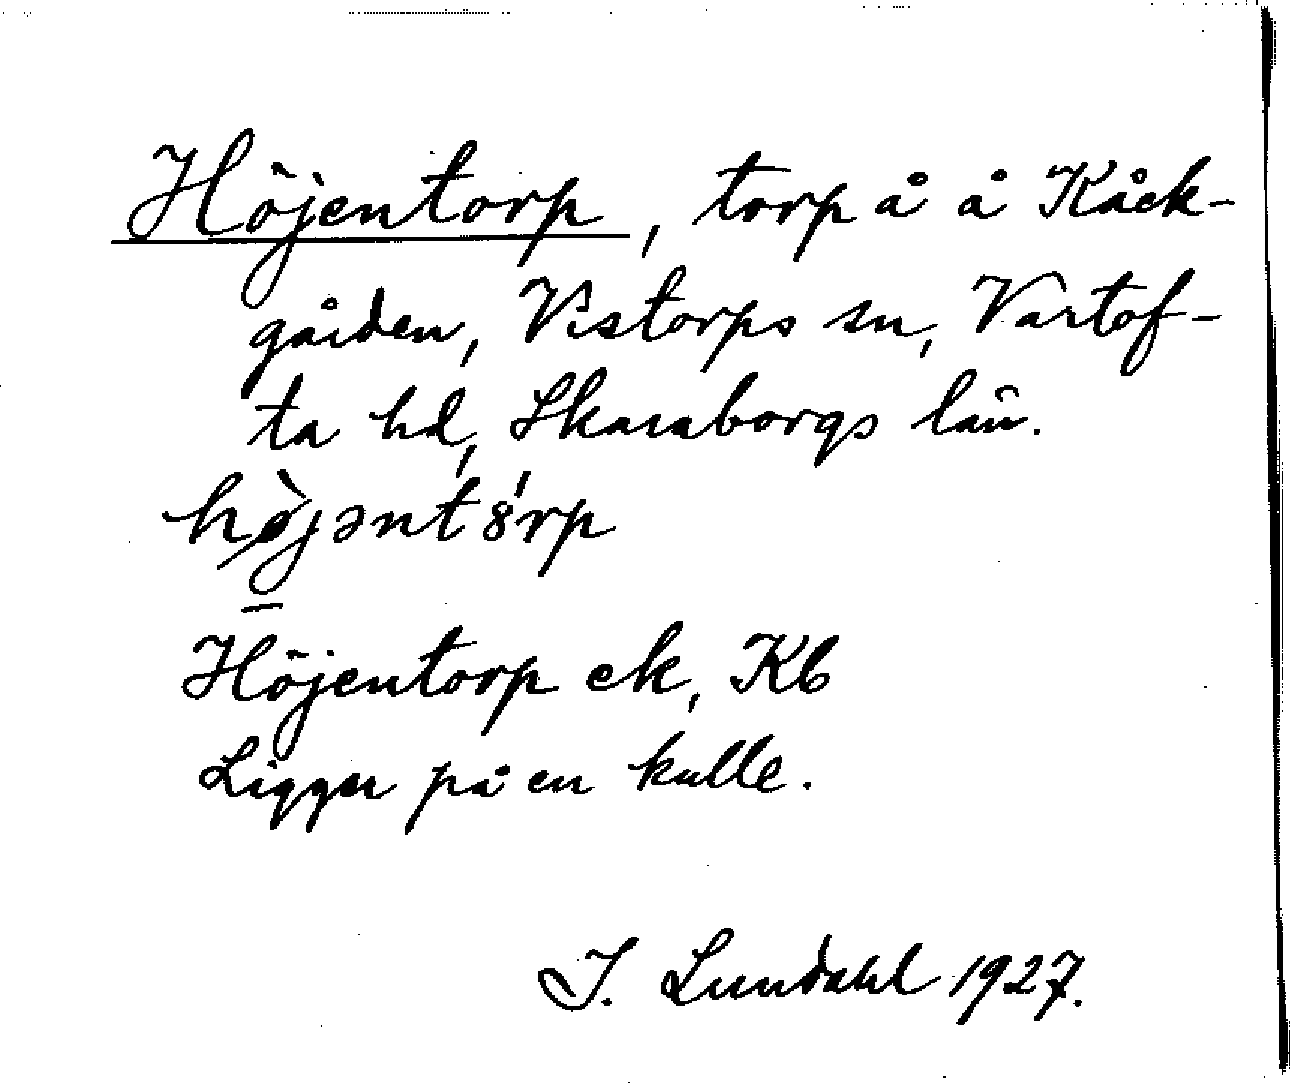 Höjentorp, torp å å Kåck-
gården, Vistorps sn, Vartof-
ta hd, Skaraborgs län.
hø̀jəntȣ́rp
Höjentorp ek, Kb
Ligger på en kulle.
I. Lundahl 1927.